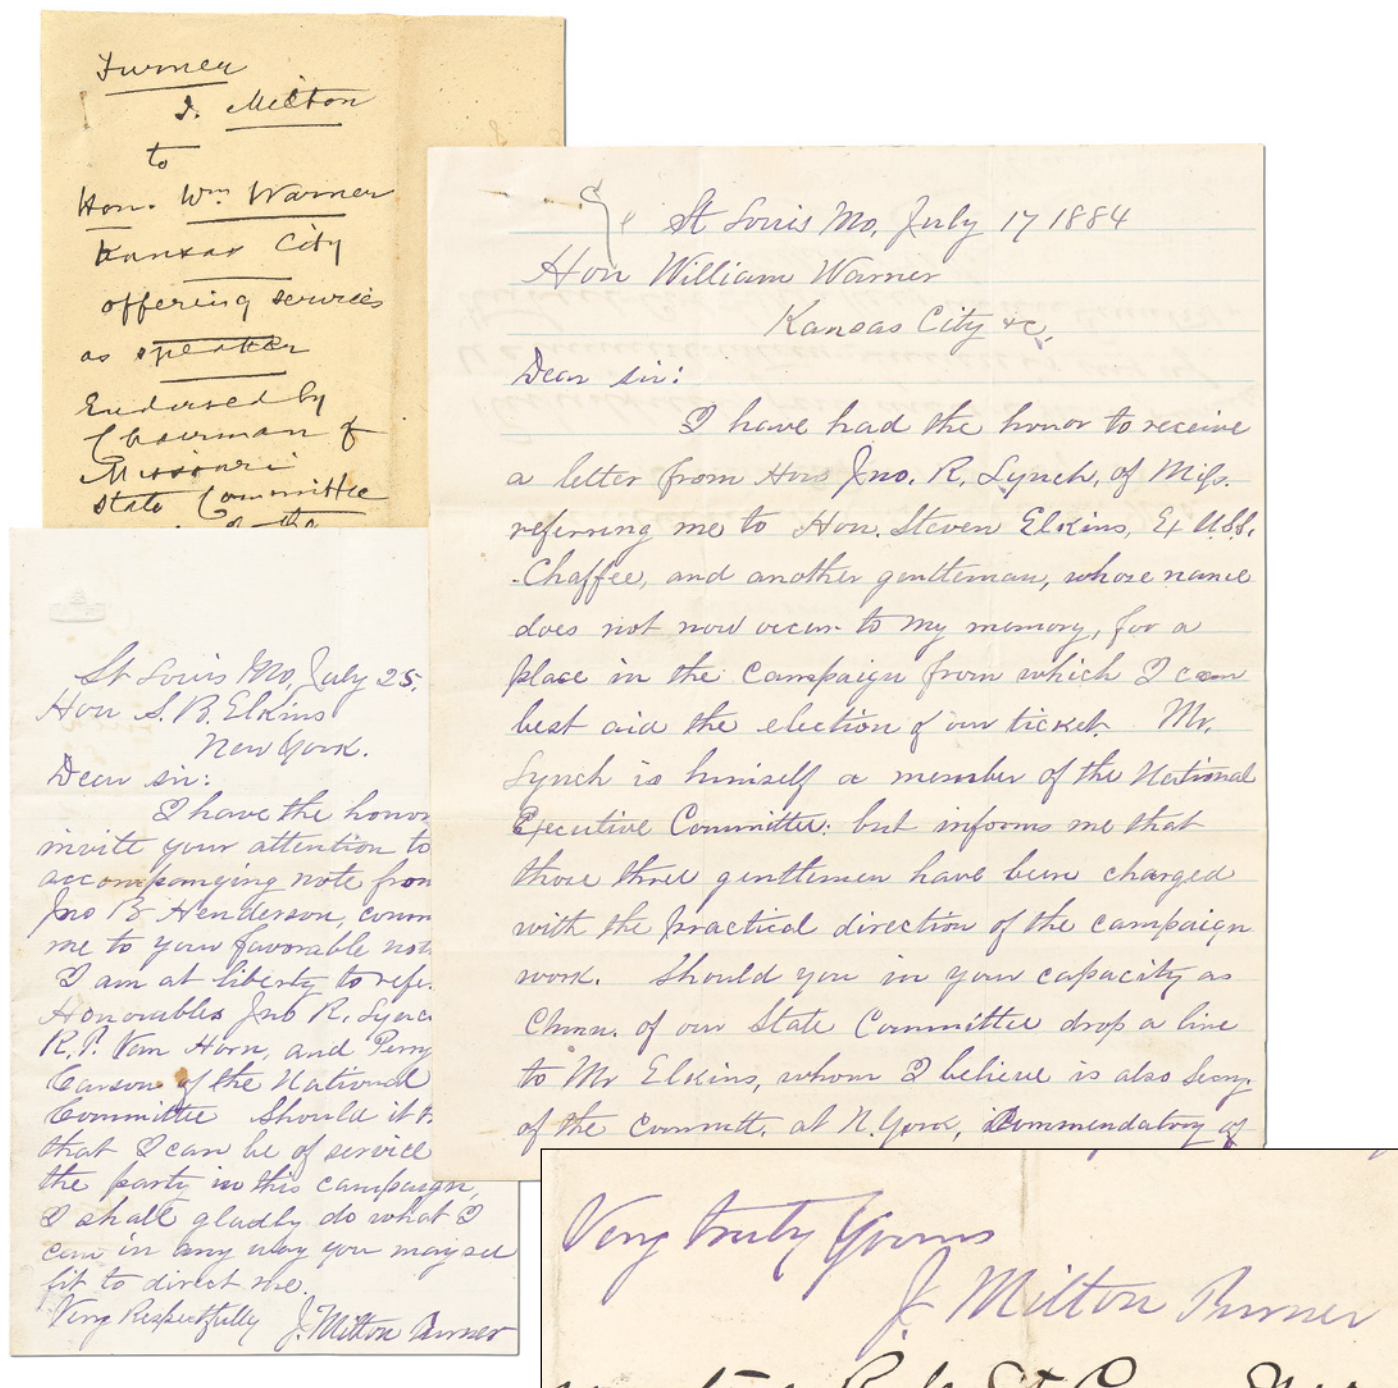 Turner
J. Milton
to
Hon. Wm Warner
Kansas City
offering services
as speaker
Endorsed by
Chairman of
Missouri
State Committee
of the
St Louis Mo, July 17 1884
Hon William Warner
Kansas City &c,
Dear sir:
I have had the honor to receive
a letter from Hon Jno. R. Lynch, of Miss.
referring me to Hon. Steven Elkins, Ex U.S.S.
Chaffee, and another gentleman, whose name
does not now occur to my memory, for a
place in the campaign from which I can
best aid the election of our ticket. Mr.
Lynch is himself a member of the National
Executive Committee: but informs me that
those three gentlemen have been charged
with the practical direction of the campaign
work. Should you in your capacity as
Chmn. of our State Committee drop a line
to Mr Elkins, whom I believe is also Secy
of the Committ. at N. York, Commendatory of
St Louis Mo, July 25,
Hon S. B. Elkins
New York.
Dear sir:
I have the honor
invite your attention to
accompanying note from
Jno B Henderson, comm
me to your favorable not
I am at liberty to refe
Honorables Jno R. Lync
R. T. Van Horn, and Perry
Carson of the National
Committee Should it
that I can be of service
the party in this campaign,
I shall gladly do what I
can in any way you may see
fit to direct me.
Very Respectfully J. Milton Turner
Very truly Yours
J. Milton Turner